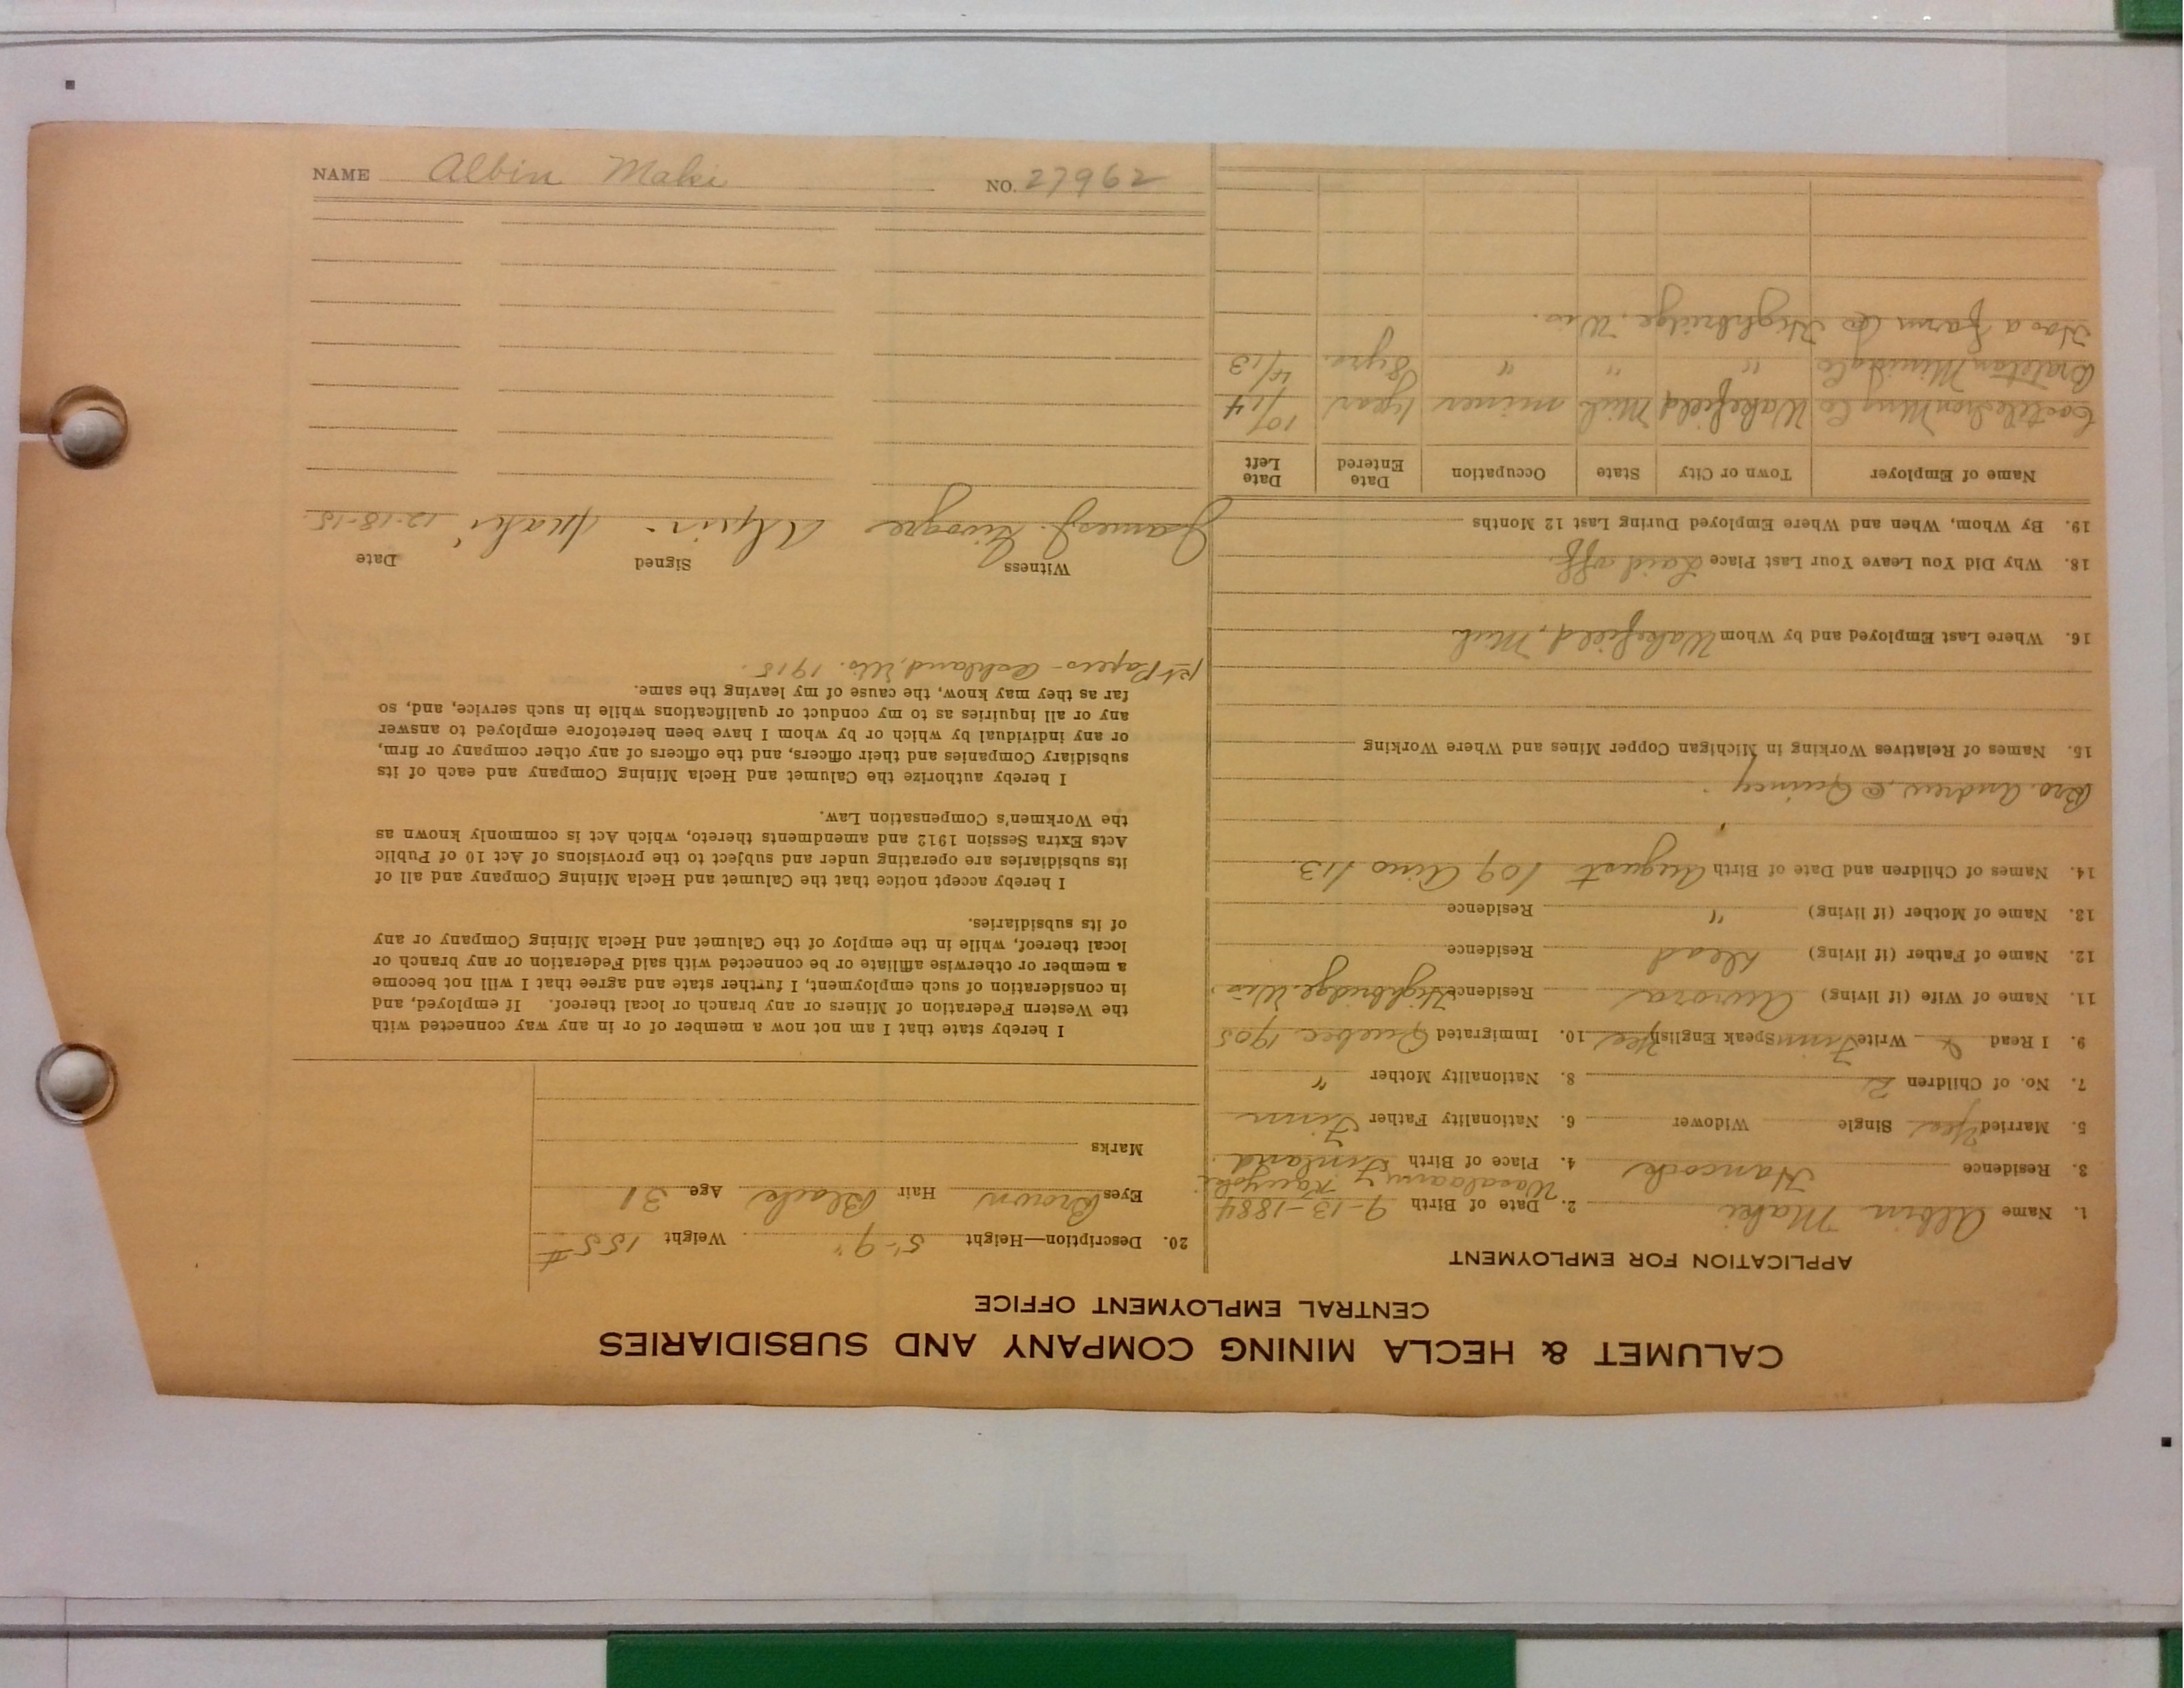 NAME Albin Maki NO. 27962
CALUMET & HECLA MINING COMPANY AND SUBSIDIARIES
CENTRAL EMPLOYMENT OFFICE
APPLICATION FOR EMPLOYMENT
1. Name Albin Maki 2. Date of Birth 9-13-1884
3. Residence Hancock 4. Place of Birth Finland
5. Married Yes Single Widower 6. Nationality Father Finn
7. No. of Children 2 8. Nationality Mother "
9. I Read & Write Finn Speak English Yes 10. Immigrated Quebec 1905
11. Name of Wife (if living) Aurora Residence Highbridge, Wis.
12. Name of Father (if living) Dead Residence
13. Name of Mother (if living) " Residence
14. Names of Children and Date of Birth August 109 Aino 113
Bro. Andrew @ Quincy.
15. Names of Relatives Working in Michigan Copper Mines and Where Working
16. Where Last Employed and by Whom Wakefield, Mich
18. Why Did You Leave Your Last Place Laid off.
19. By Whom, When and Where Employed During Last 12 Months
Name of Employer Town or City State Occupation Date Entered Date Left
Mng Co Wakefield Mich miner 1 year 10/14
Mining Co " " " 8 yrs. 4/13
Has a farm @ Highbridge, Wis.
20. Description—Height 5'-9" Weight 155#
Eyes Brown Hair Black Age 31
Marks
I hereby state that I am not now a member of or in any way connected with
the Western Federation of Miners or any branch or local thereof. If employed, and
in consideration of such employment, I further state and agree that I will not become
a member or otherwise affiliate or be connected with said Federation or any branch or
local thereof, while in the employ of the Calumet and Hecla Mining Company or any
of its subsidiaries.
I hereby accept notice that the Calumet and Hecla Mining Company and all of
its subsidiaries are operating under and subject to the provisions of Act 10 of Public
Acts Extra Session 1912 and amendments thereto, which Act is commonly known as
the Workmen's Compensation Law.
I hereby authorize the Calumet and Hecla Mining Company and each of its
subsidiary Companies and their officers, and the officers of any other company or firm,
or any individual by which or by whom I have been heretofore employed to answer
any or all inquiries as to my conduct or qualifications while in such service, and, so
far as they may know, the cause of my leaving the same.
1st Papers - Ashland, Wis. 1915.
Witness Signed Date
James J. Maki 12-18-15.